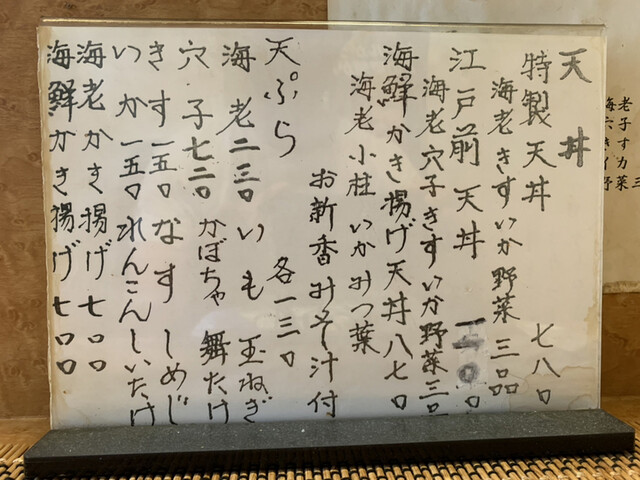 天丼
特製天丼 七八〇
海老きすいか野菜三品
江戸前天丼
海老穴子きすいか野菜三品
海鮮かき揚げ天丼八七〇
海老小柱いかみつ葉
お新香みそ汁付
天ぷら 各一三〇
海老二三〇いも 玉ねぎ
穴子七二〇かぼちゃ 舞たけ
きす一五〇なす しめじ
いか一五〇れんこんしいたけ
海老かき揚げ七〇〇
海鮮かき揚げ七〇〇